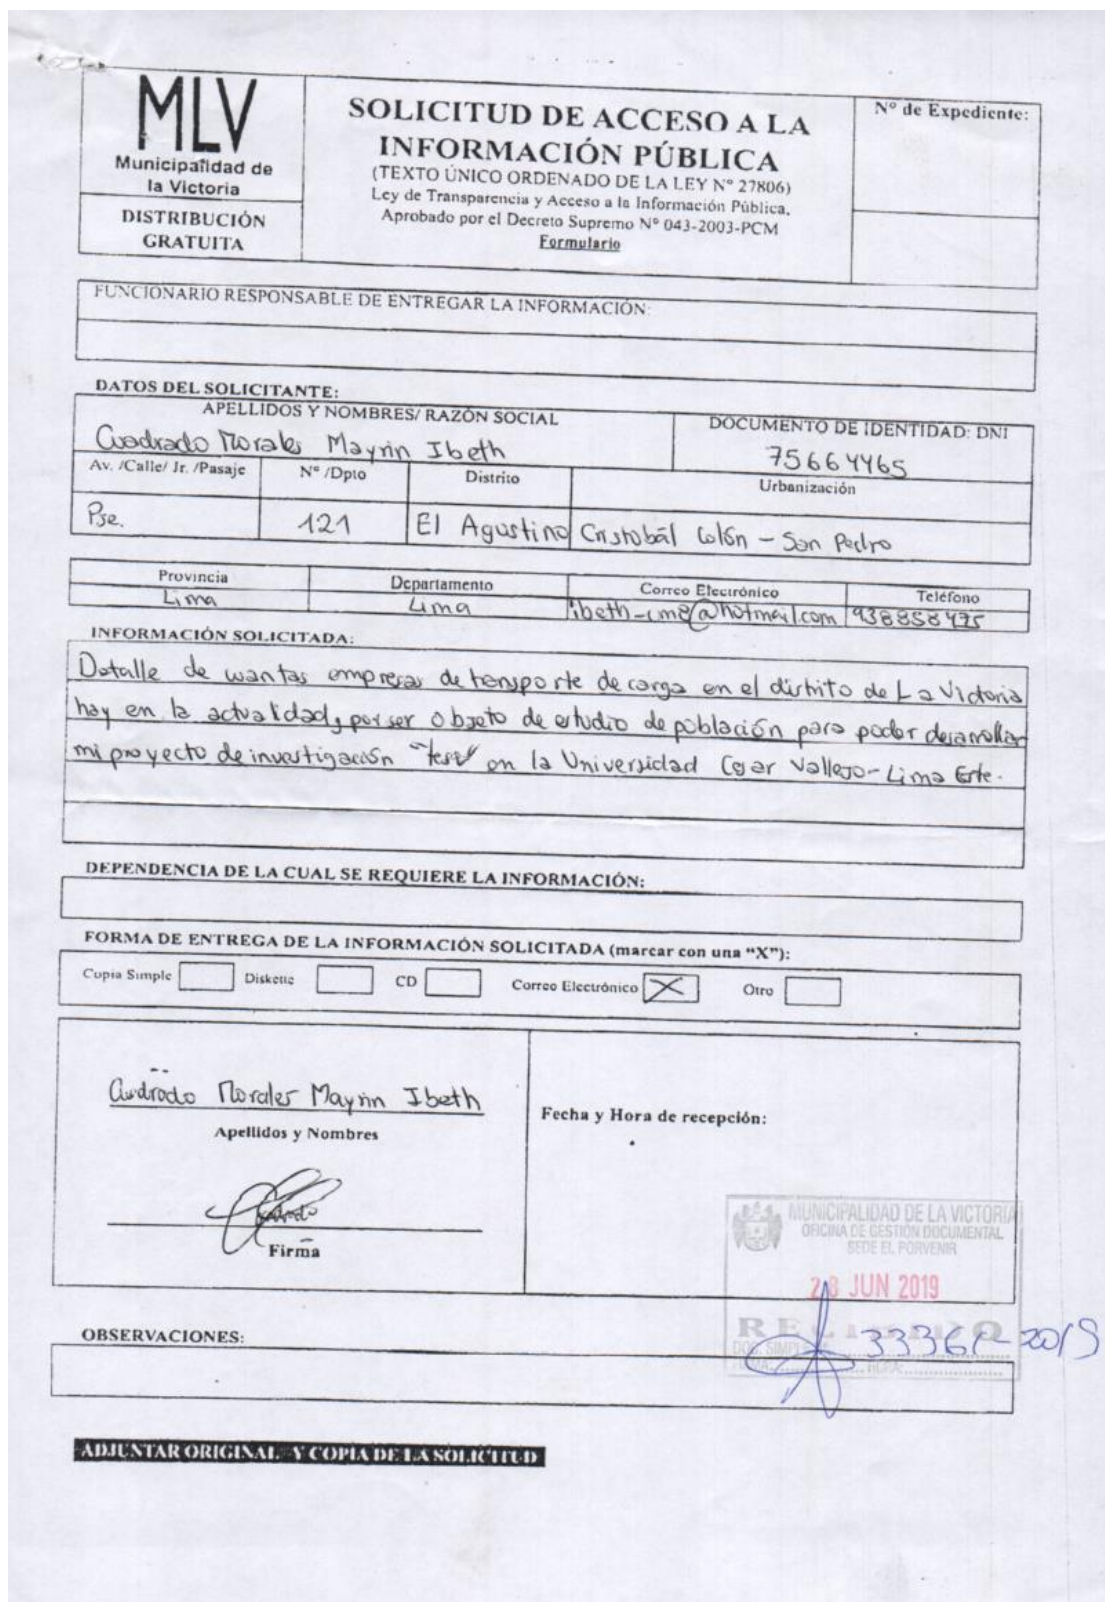 MLV
Municipalidad de
la Victoria
DISTRIBUCIÓN
GRATUITA
SOLICITUD DE ACCESO A LA
INFORMACIÓN PÚBLICA
(TEXTO ÚNICO ORDENADO DE LA LEY Nº 27806)
Ley de Transparencia y Acceso a la Información Pública,
Aprobado por el Decreto Supremo Nº 043-2003-PCM
Formulario
Nº de Expediente:
FUNCIONARIO RESPONSABLE DE ENTREGAR LA INFORMACIÓN:
DATOS DEL SOLICITANTE:
APELLIDOS Y NOMBRES/ RAZÓN SOCIAL
DOCUMENTO DE IDENTIDAD: DNI
Cuadrado Morales Mayrin Ibeth
75664465
Av. /Calle/ Jr. /Pasaje Nº /Dpto Distrito Urbanización
Pse. 121 El Agustino Cristobál Colón - San Pedro
Provincia Departamento Correo Electrónico Teléfono
Lima Lima ibeth-cm@hotmail.com 938858475
INFORMACIÓN SOLICITADA:
Detalle de cuantas empresas de transporte de carga en el distrito de La Victoria
hay en la actualidad, por ser objeto de estudio de población para poder desarrollar
mi proyecto de investigación "tesis" en la Universidad Cesar Vallejo - Lima Este.
DEPENDENCIA DE LA CUAL SE REQUIERE LA INFORMACIÓN:
FORMA DE ENTREGA DE LA INFORMACIÓN SOLICITADA (marcar con una "X"):
Copia Simple Diskette CD Correo Electrónico X Otro
Cuadrado Morales Mayrin Ibeth
Apellidos y Nombres
Firma
Fecha y Hora de recepción:
MUNICIPALIDAD DE LA VICTORIA
OFICINA DE GESTIÓN DOCUMENTAL
SEDE EL PORVENIR
28 JUN 2019
RECIBIDO
DOC. SIMPLE
HORA:
2019
OBSERVACIONES:
ADJUNTAR ORIGINAL Y COPIA DE LA SOLICITUD